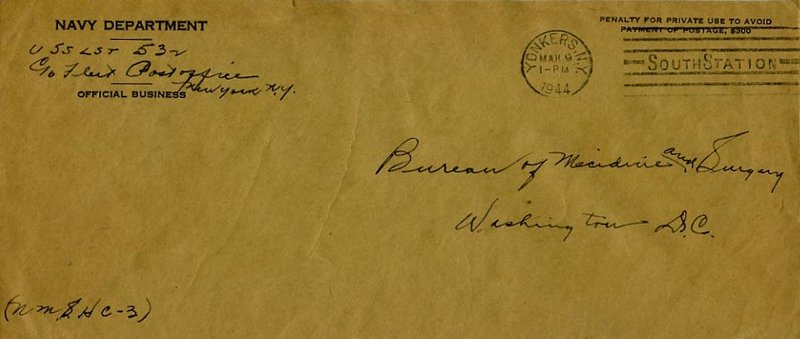 NAVY DEPARTMENT
USS LST 532
C/o Fleet Post office
New York N.Y.
OFFICIAL BUSINESS
PENALTY FOR PRIVATE USE TO AVOID
PAYMENT OF POSTAGE, $300
YONKERS, N.Y.
MAR 9
1-PM
1944
SOUTH STATION
Bureau of Medicine and Surgery
Washington D.C.
(NM&HC-3)